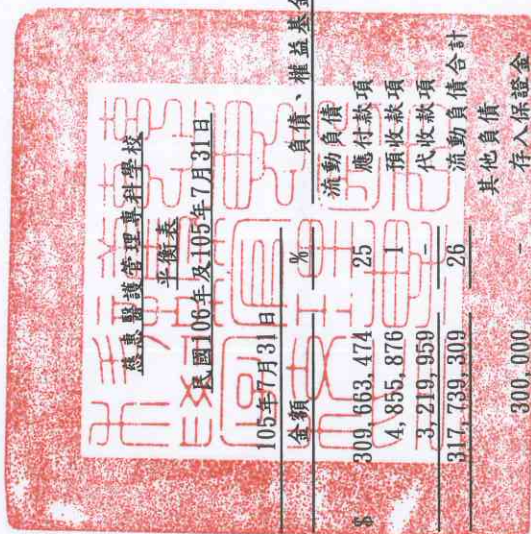 慈惠醫護管理專科學校
平衡表
民國106年及105年7月31日
105年7月31日 負債、權益基金
金額 %
流動負債
$ 309,663,474 25 應付款項
4,855,876 1 預收款項
3,219,959 - 代收款項
317,739,309 26 流動負債合計
其他負債
300,000 - 存入保證金